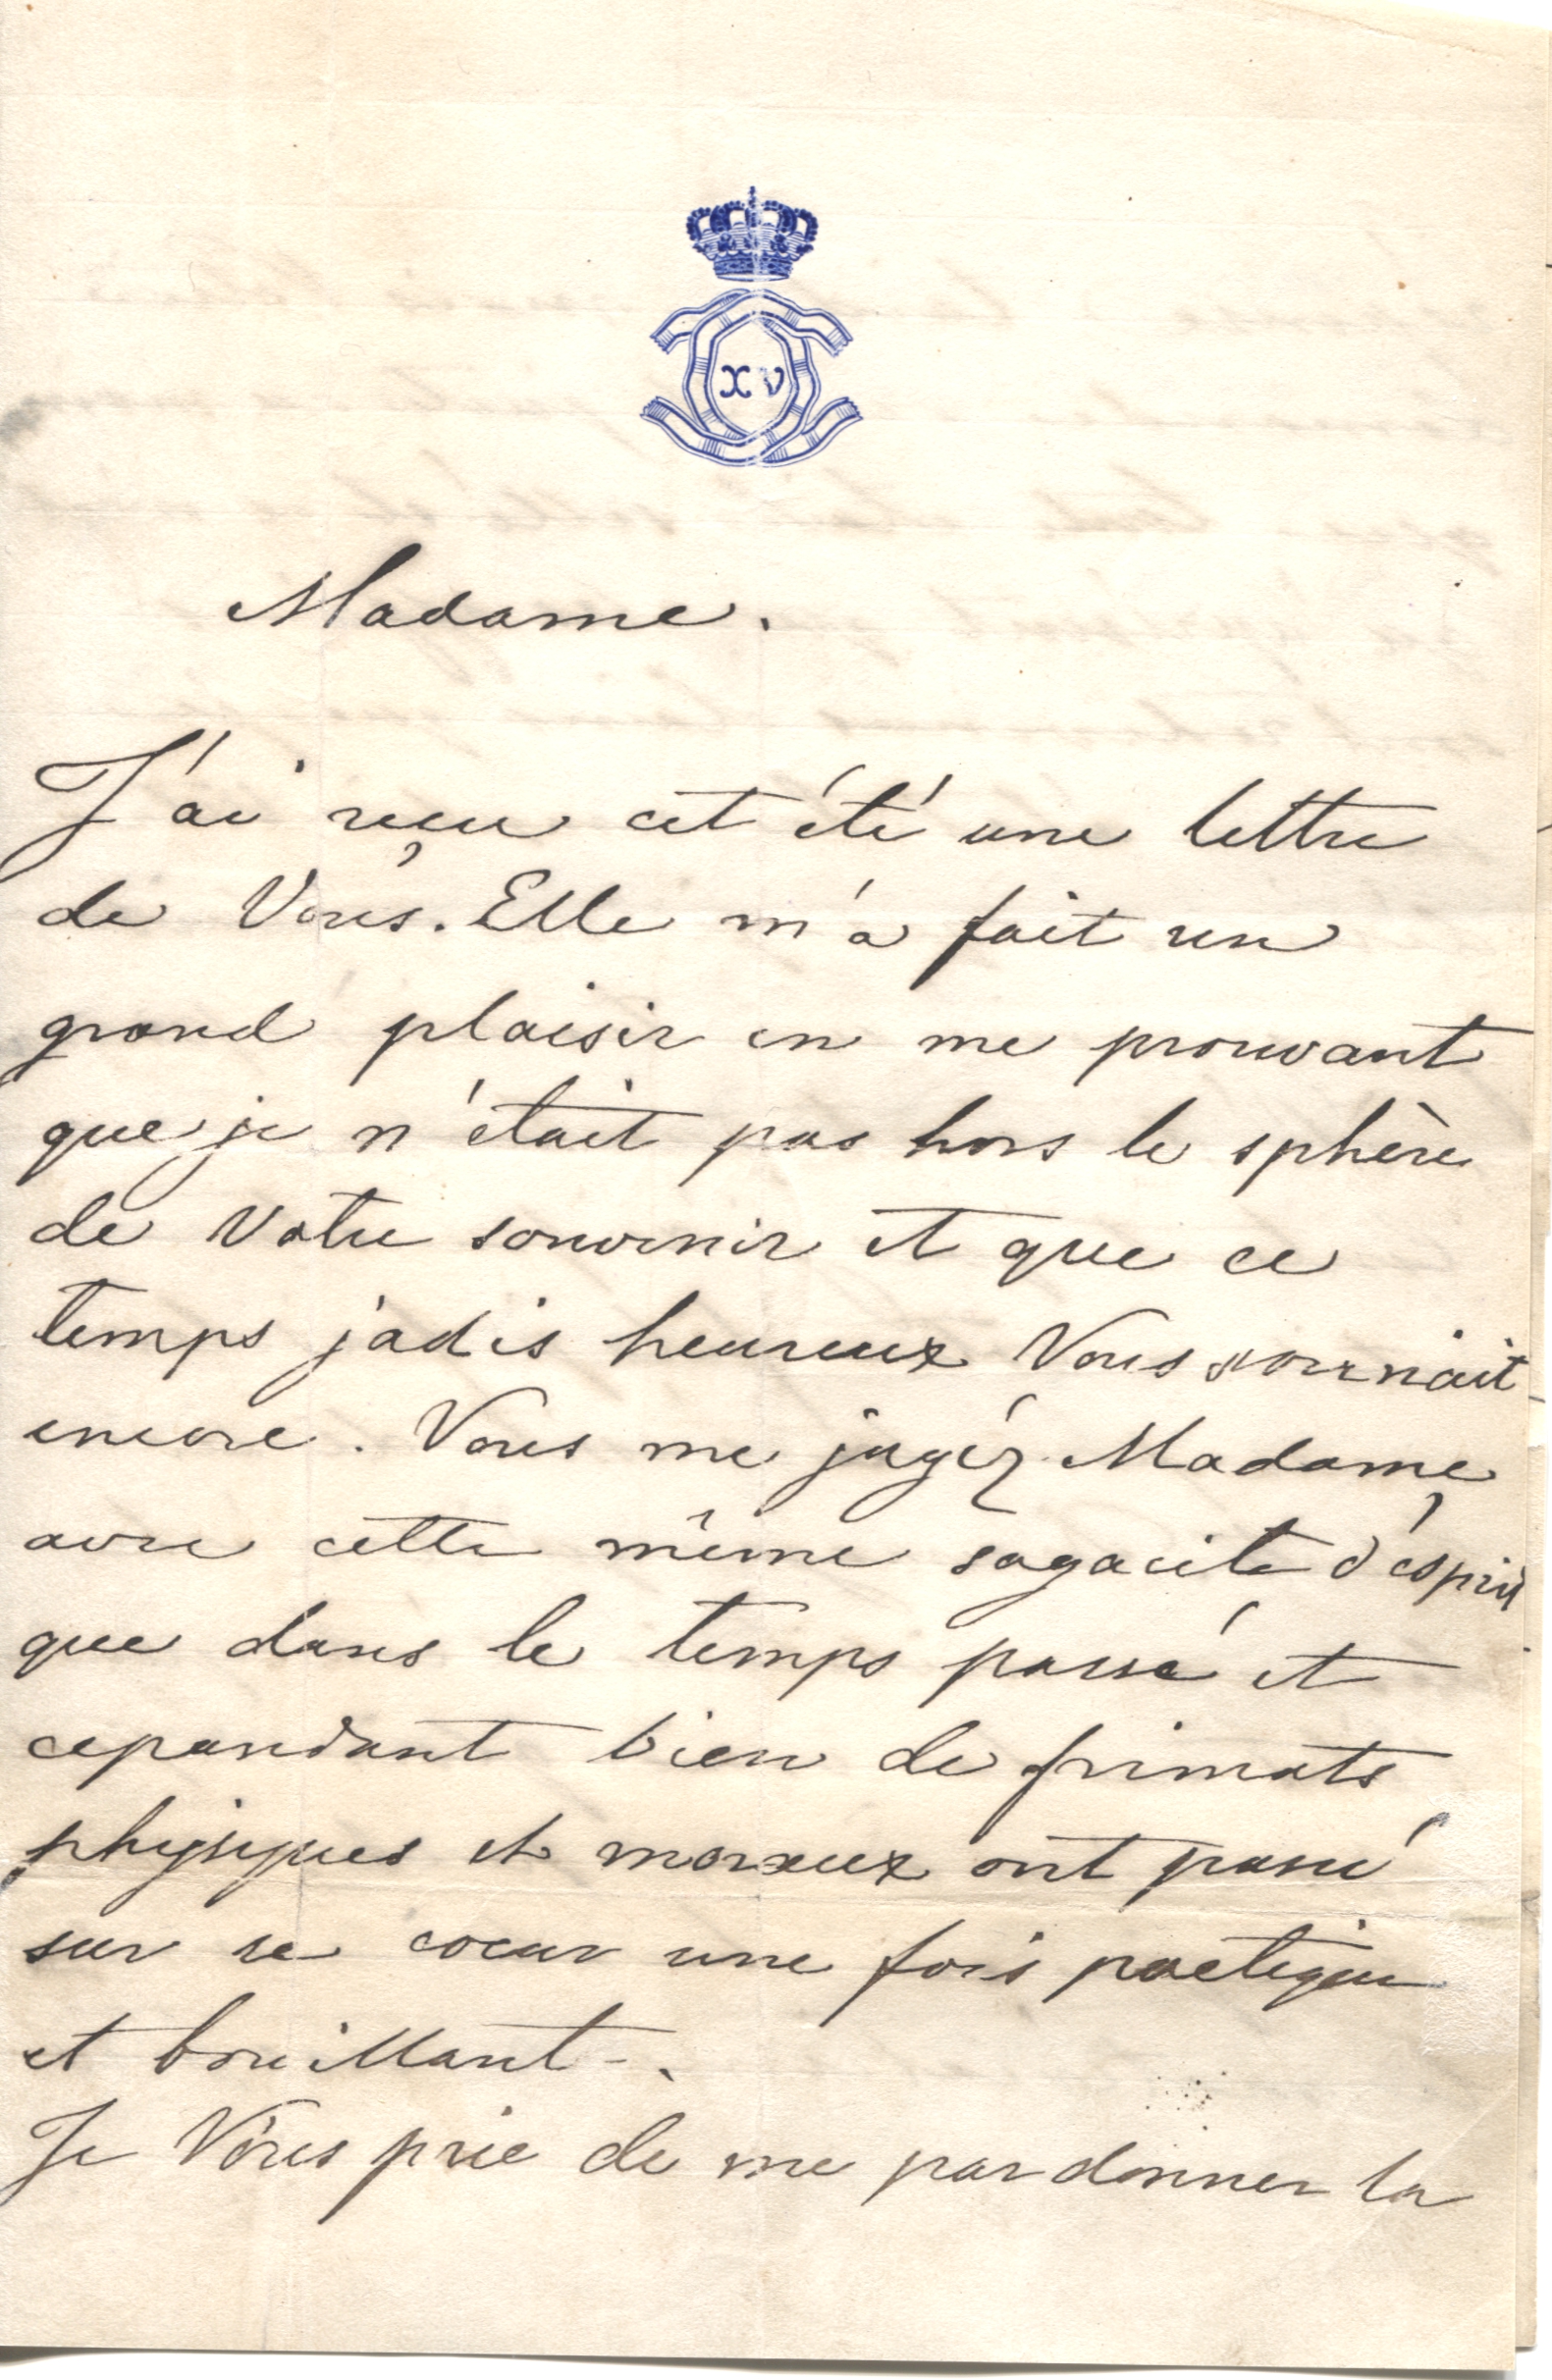 XV
Madame.
J'ai reçu cet été une lettre
de Vous. Elle m'a fait un
grand plaisir en me prouvant
que je n'était pas hors le sphère
de Votre souvenir et que ce
temps jadis heureux Vous
encore. Vous me jugéz Madame
avec cette même sagacite d'ésprit
que dans le temps passé et
cependant bien de frimats
physiques et moraux ont passé
sur ce coeur une fois poetique
et bouillant-.
Je Vous prie de me pardonner la